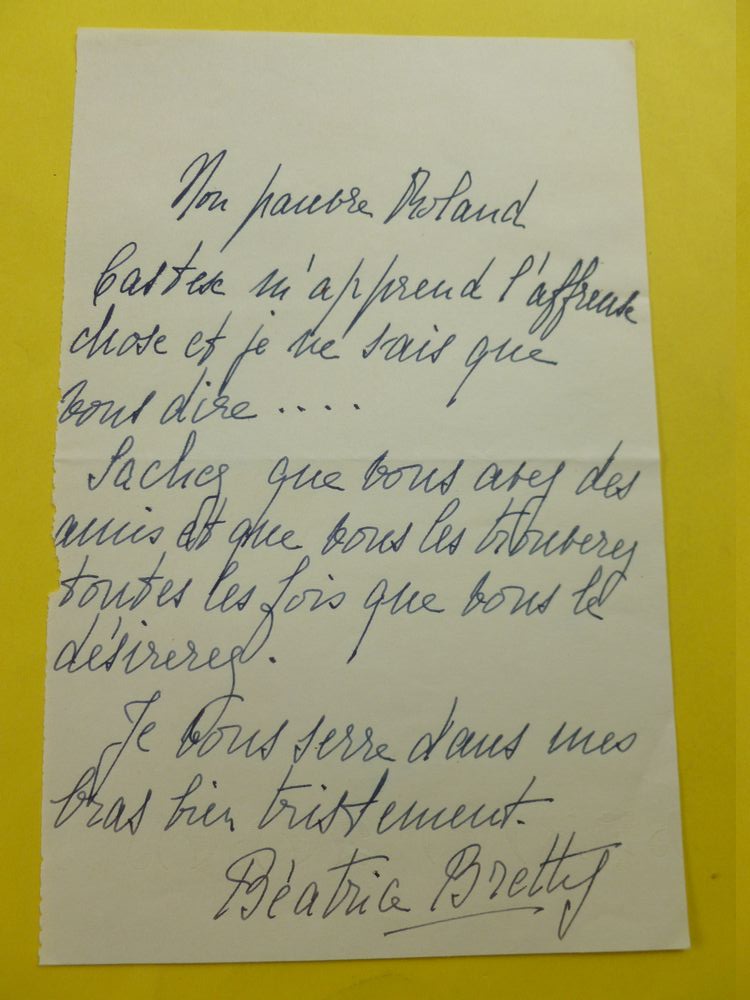 Mon pauvre Roland
Castex m'apprend l'affreuse
chose et je ne sais que
vous dire ....
Sachez que vous avez des
amis et que vous les trouverez
toutes les fois que vous le
désirerez.
Je vous serre dans mes
bras bien tristement.
Béatrice Bretty